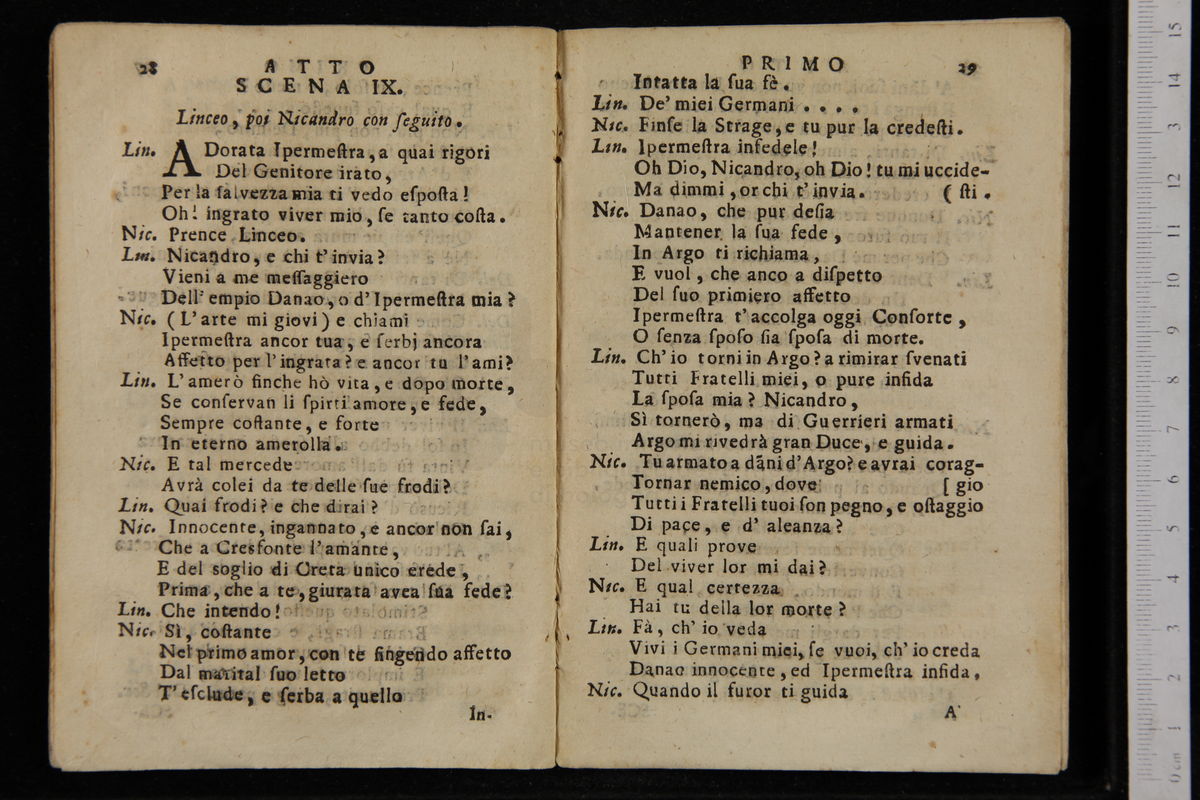 28 ATTO
SCENA IX.
Linceo, poi Nicandro con ſeguito.
Lin. ADorata Ipermeſtra, a quai rigori
Del Genitore irato,
Per la ſalvezza mia ti vedo eſpoſta!
Oh! ingrato viver mio, ſe tanto coſta.
Nic. Prence Linceo.
Lin. Nicandro, e chi t'invia?
Vieni a me meſſaggiero
Dell' empio Danao, o d'Ipermeſtra mia?
Nic. (L'arte mi giovi) e chiami
Ipermeſtra ancor tua, e ſerbj ancora
Affetto per l'ingrata? e ancor tu l'ami?
Lin. L'amerò finche hò vita, e dopo morte,
Se conſervan li ſpirti amore, e fede,
Sempre coſtante, e forte
In eterno amerolla.
Nic. E tal mercede
Avrà colei da te delle ſue frodi?
Lin. Quai frodi? e che dirai?
Nic. Innocente, ingannato, e ancor non ſai,
Che a Cresfonte l'amante,
E del soglio di Creta unico erede,
Prima, che a te, giurata avea ſua fede?
Lin. Che intendo!
Nic. Sì, coſtante
Nel primo amor, con te fingendo affetto
Dal marital ſuo letto
T'eſclude, e ſerba a quello
In-
PRIMO 29
Intatta la ſua fè.
Lin. De' miei Germani . . . .
Nic. Finſe la Strage, e tu pur la credeſti.
Lin. Ipermeſtra infedele!
Oh Dio, Nicandro, oh Dio! tu mi uccide-
Ma dimmi, or chi t'invia. ( ſti.
Nic. Danao, che pur deſia
Mantener la ſua fede,
In Argo ti richiama,
E vuol, che anco a diſpetto
Del ſuo primiero affetto
Ipermeſtra t'accolga oggi Conſorte,
O ſenza ſpoſo ſia ſpoſa di morte.
Lin. Ch'io torni in Argo? a rimirar ſvenati
Tutti Fratelli miei, o pure infida
La ſpoſa mia? Nicandro,
Sì tornerò, ma di Guerrieri armati
Argo mi rivedrà gran Duce, e guida.
Nic. Tu armato a dāni d'Argo? e avrai corag-
Tornar nemico, dove [ gio
Tutti i Fratelli tuoi ſon pegno, e oſtaggio
Di pace, e d' aleanza?
Lin. E quali prove
Del viver lor mi dai?
Nic. E qual certezza
Hai tu della lor morte?
Lin. Fà, ch' io veda
Vivi i Germani miei, ſe vuoi, ch' io creda
Danao innocente, ed Ipermeſtra infida,
Nic. Quando il furor ti guida
A
15
14
3
12
11
10
9
8
7
6
5
4
3
2
1
0 cm